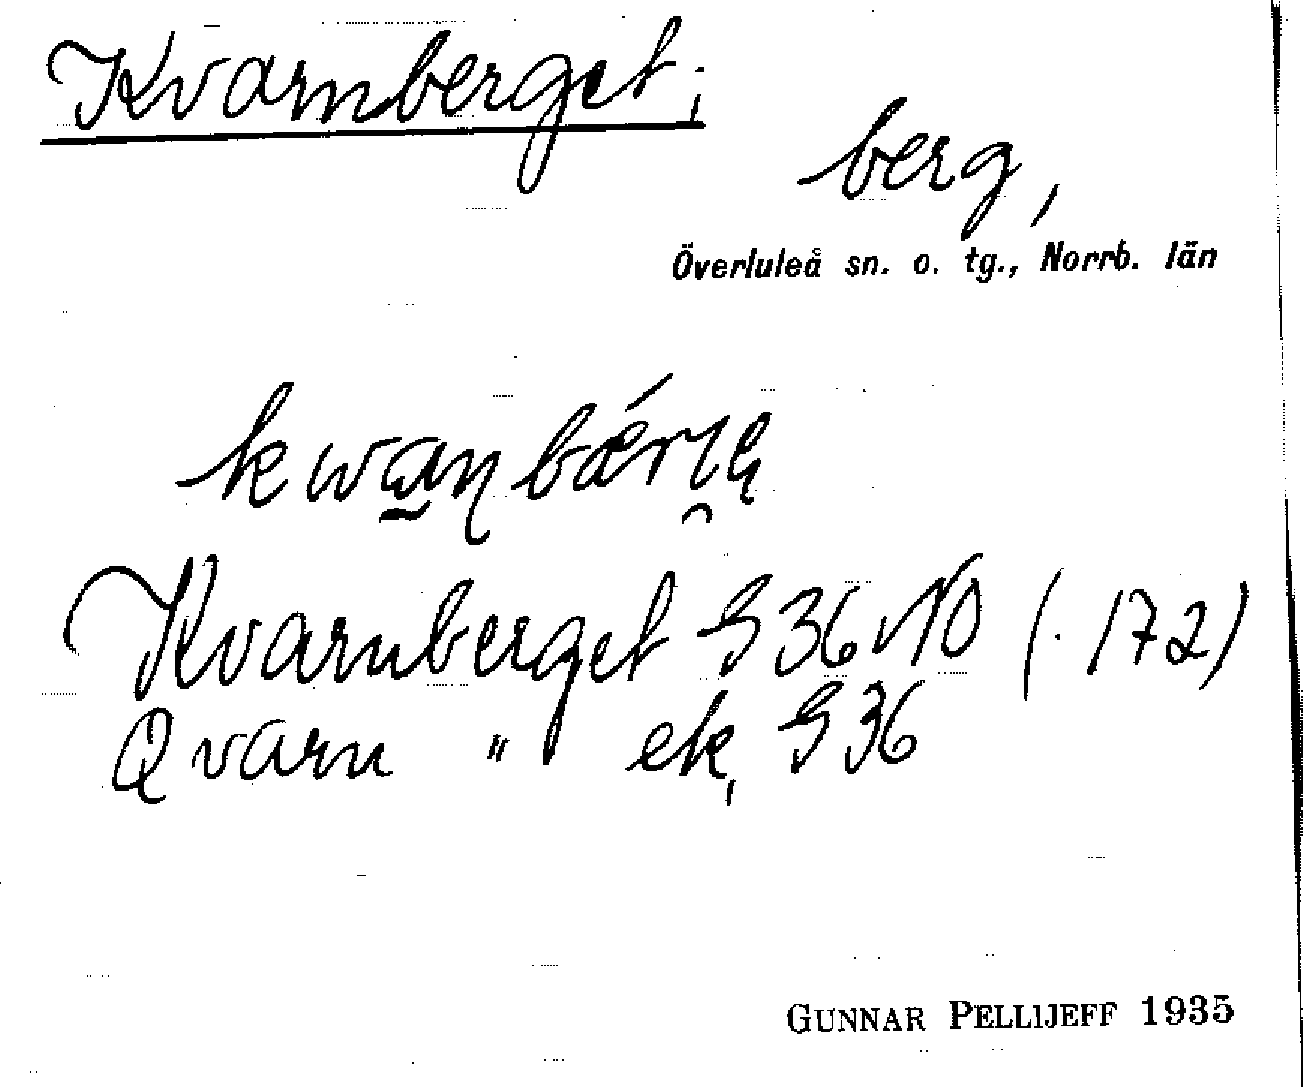 Kvarnberget;
berg,
Överluleå sn. o. tg., Norrb. län
Kvarnberget § 36 v NO (. 172)
Qvarn " ek, § 36
GUNNAR PELLIJEFF 1935